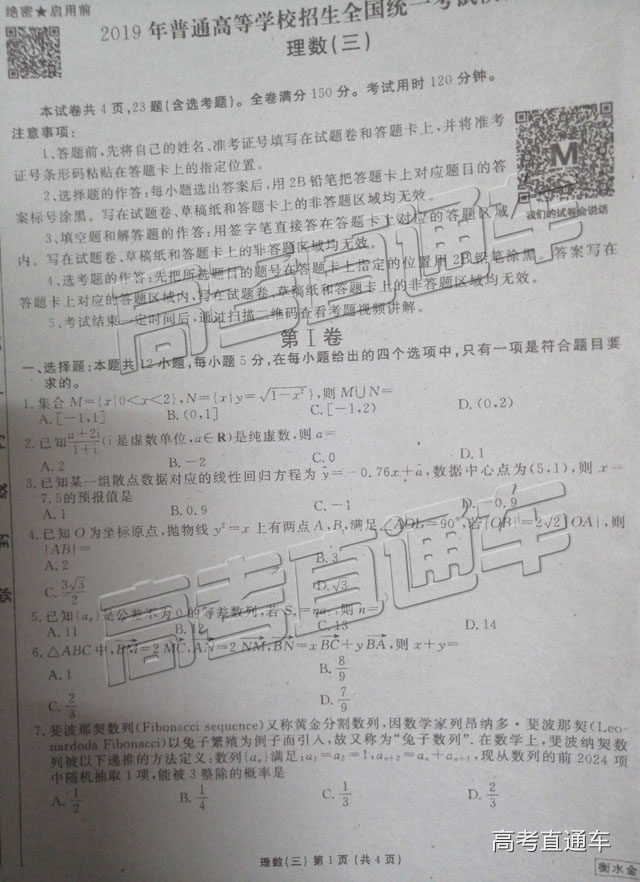 绝密★启用前
2019年普通高等学校招生全国统一考试
理数(三)
本试卷共4页,23题(含选考题)。全卷满分150分。考试用时120分钟。
注意事项:
1、答题前,先将自己的姓名、准考证号填写在试题卷和答题卡上,并将准考
证号条形码粘贴在答题卡上的指定位置。
2、选择题的作答:每小题选出答案后,用2B铅笔把答题卡上对应题目的答
案标号涂黑。写在试题卷、草稿纸和答题卡上的非答题区域均无效。
3、填空题和解答题的作答:用签字笔直接答在答题卡上对应的答题区域
内。写在试题卷、草稿纸和答题卡上的非答题区域均无效。
4、选考题的作答:先把所选题目的题号在答题卡上指定的位置用2B铅笔涂黑。答案写在
答题卡上对应的答题区域内,写在试题卷、草稿纸和答题卡上的非答题区域均无效。
5、考试结束一定时间后,通过扫描二维码查看考题视频讲解。
M
我们的试卷会说话
第Ⅰ卷
一、选择题:本题共12小题,每小题5分,在每小题给出的四个选项中,只有一项是符合题目要
求的。
1.集合M={x|0<x<2},N={x|y=√(1-x²)},则M∪N=
A.[-1,1] B.(0,1] C.[-1,2) D.(0,2)
2.已知(a+2i)/(1+i)(i是虚数单位,a∈R)是纯虚数,则a=
A.2 B.-2 C.0 D.1
3.已知某一组散点数据对应的线性回归方程为ŷ=-0.76x+â,数据中心点为(5,1),则x=
7.5的预报值是
A.1 B.0.9 C.-1 D.-0.9
4.已知O为坐标原点,抛物线y²=x上有两点A,B,满足∠AOB=90°,若|OB|=2√2|OA|,则
|AB|=
A.2 B.3
C.3√3/2 D.√3
5.已知{aₙ}是公差不为0的等差数列,若
则n=
A.11 B.12 C.13 D.14
6.△ABC中,BM=2MC,AN=2NM,BN=xBC+yBA,则x+y=
A.1 B.8/9
C.2/3 D.7/9
7.斐波那契数列(Fibonacci sequence)又称黄金分割数列,因数学家列昂纳多·斐波那契(Leo-
nardoda Fibonacci)以兔子繁殖为例子而引入,故又称为“兔子数列”.在数学上,斐波纳契数
列被以下递推的方法定义:数列{aₙ}满足:a₁=a₂=1,aₙ₊₂=aₙ+aₙ₊₁,现从数列的前2024项
中随机抽取1项,能被3整除的概率是
A.1/2 B.1/4 C.1/3 D.2/3
理数(三) 第1页(共4页)
高考直通车
高考直通车
高考直通车
衡水金